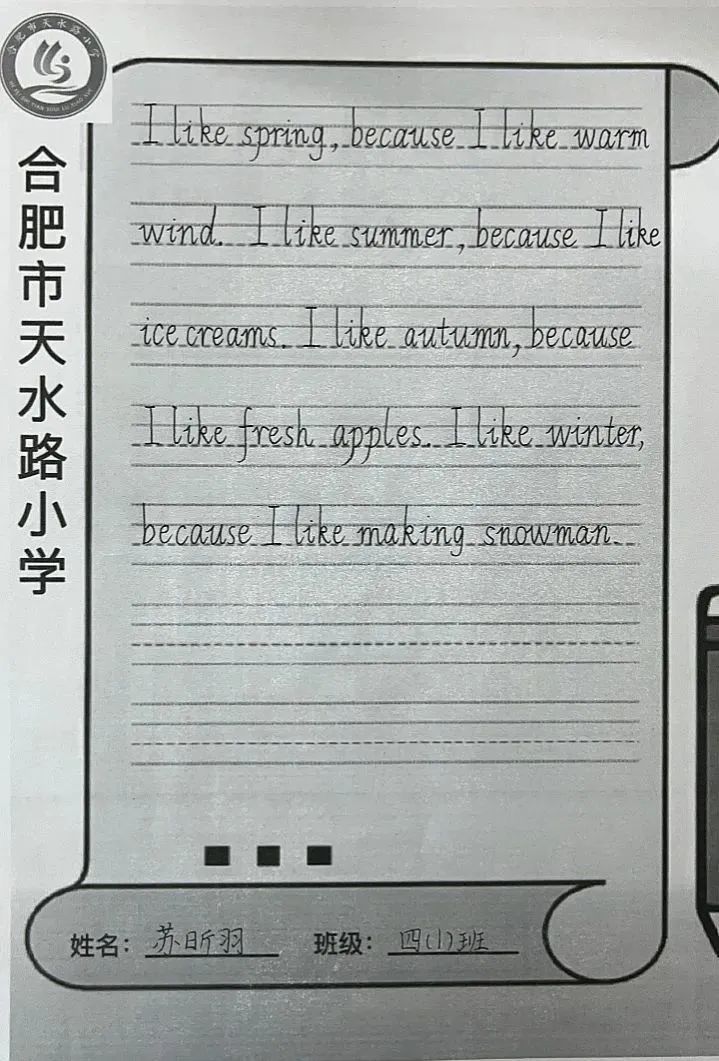 合肥市天水路小学
HE FEI SHI TIAN SHUI LU XIAO XUE
合肥市天水路小学
I like spring, because I like warm
wind. I like summer, because I like
ice creams. I like autumn, because
I like fresh apples. I like winter,
because I like making snowman.
姓名: 苏昕羽 班级: 四(1)班